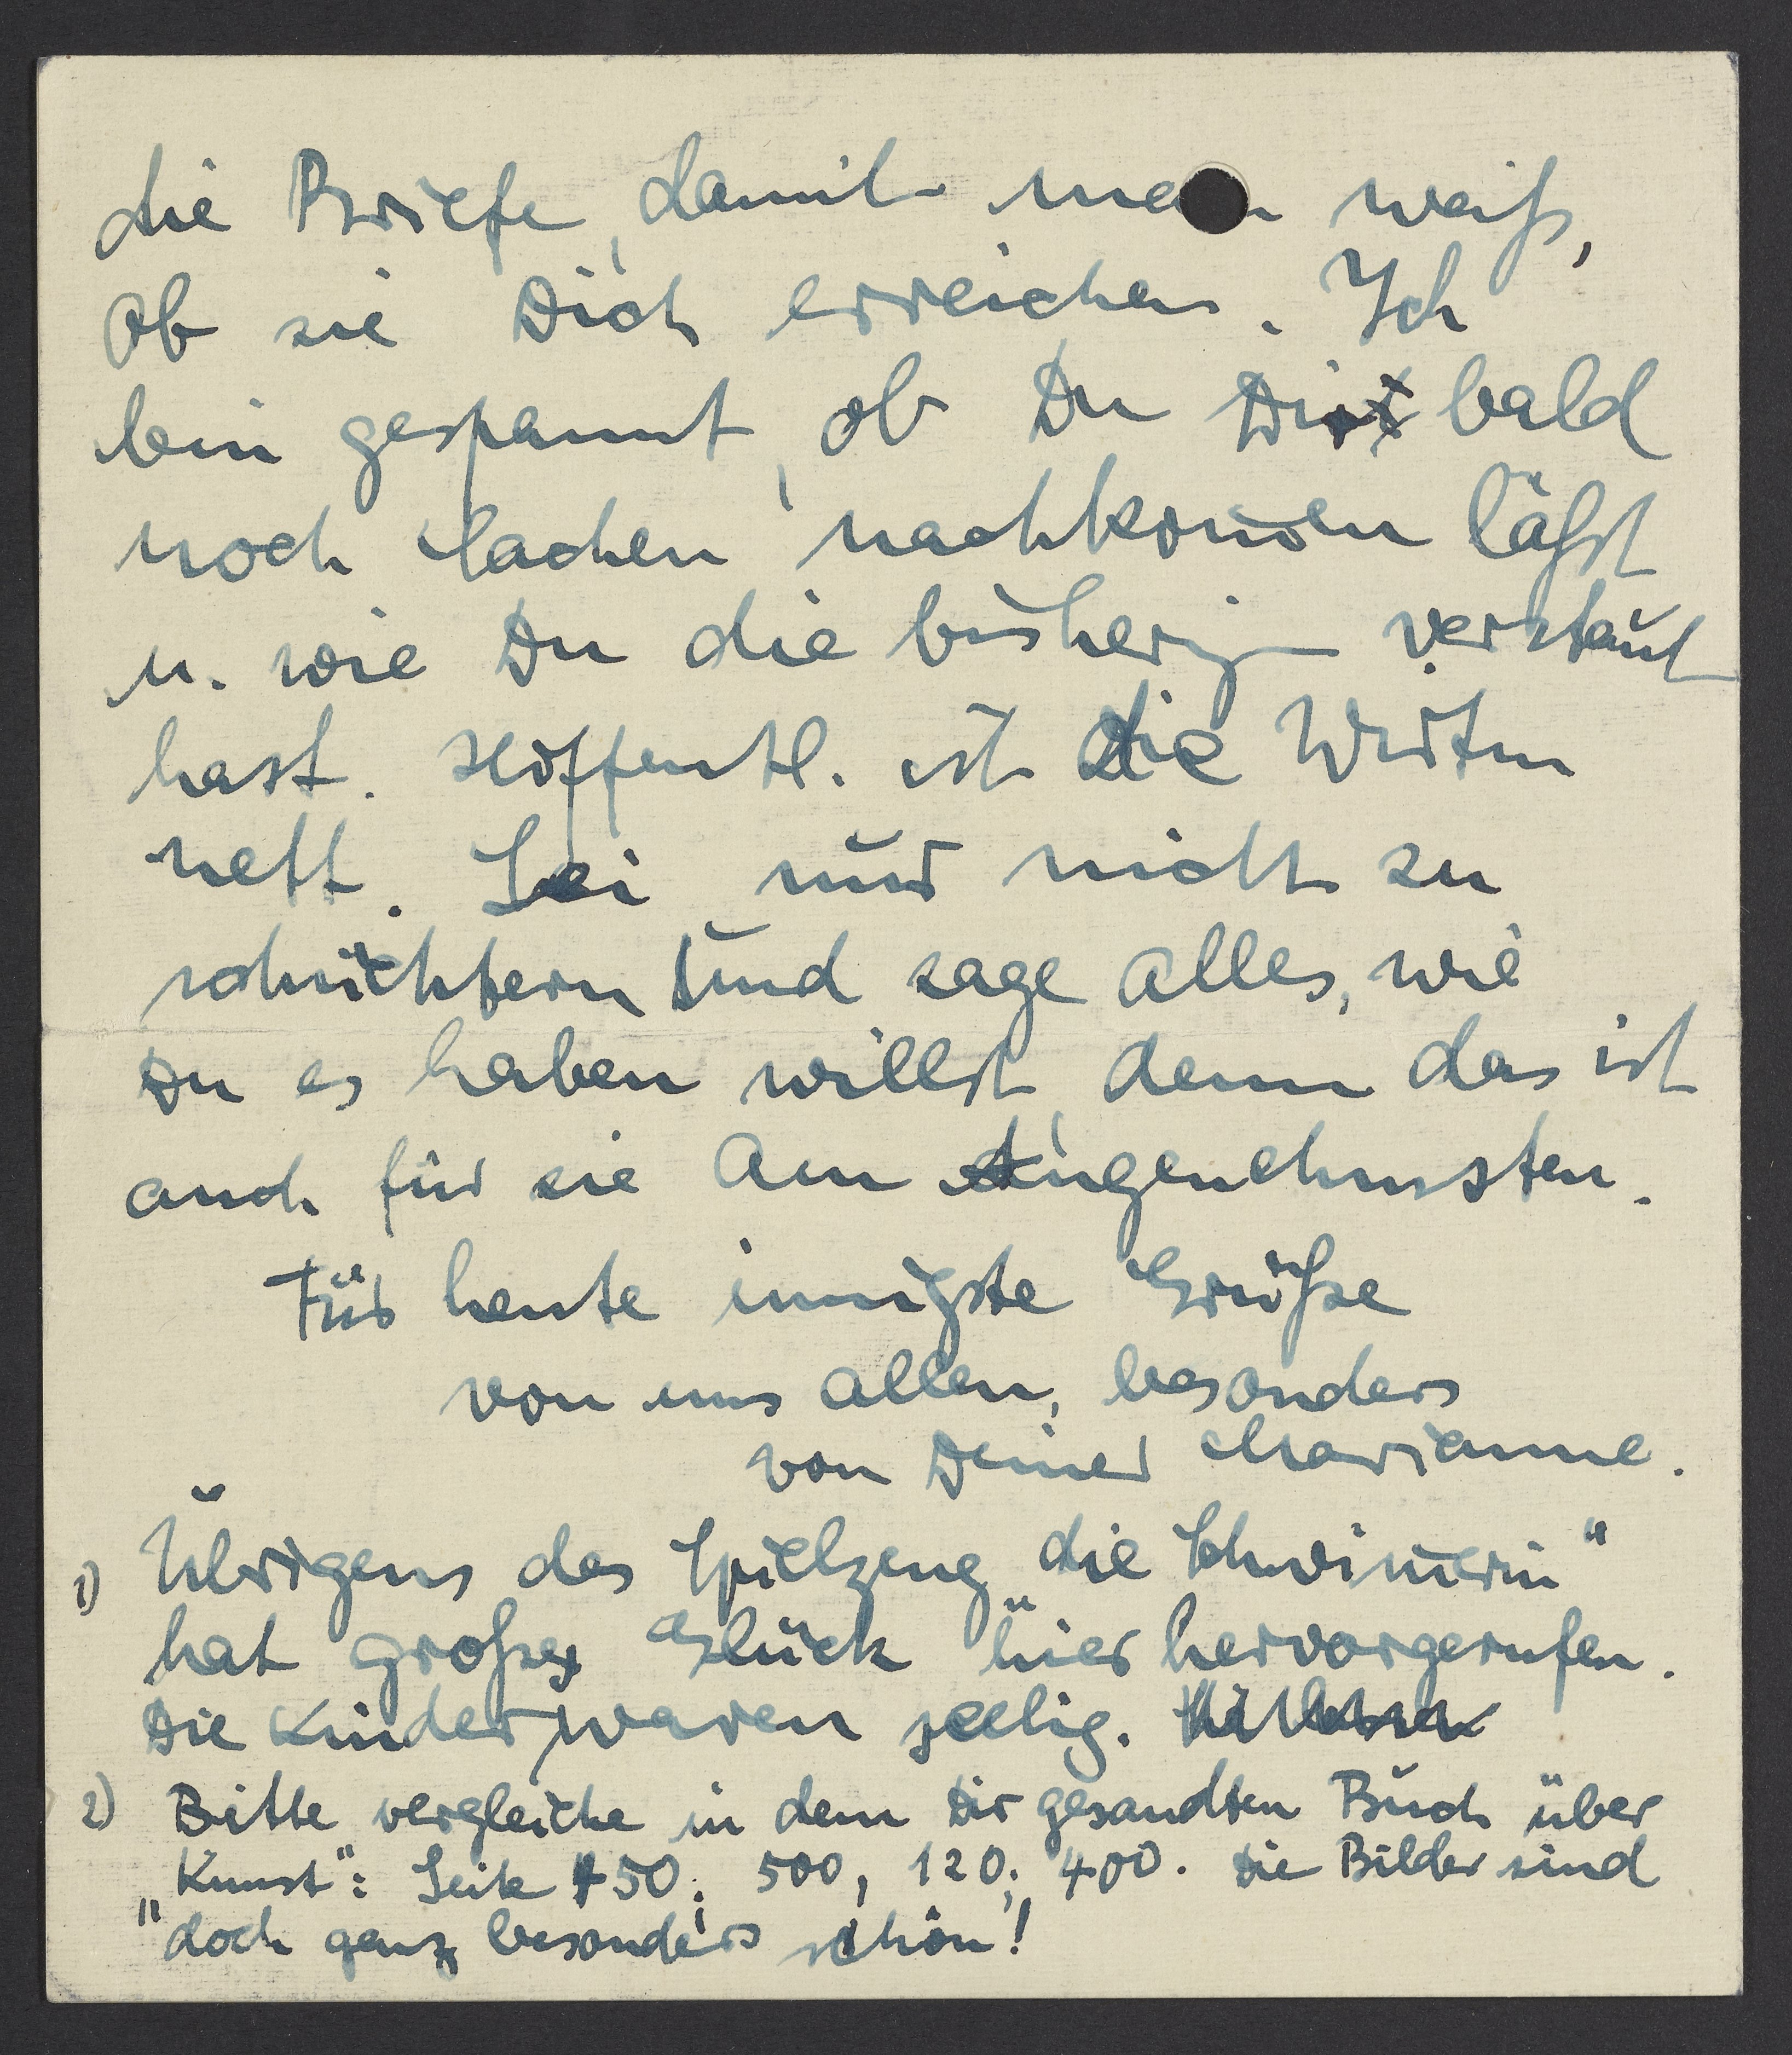 die Briefe, damit man weiß,
ob sie Dich erreichen. Ich
bin gespannt, ob Du Dir bald
noch Sachen nachkom̄en läßt
u. wie Du die bisherig verstaut
hast. Hoffentl. ist die Wirtin
nett. Sei nur nicht zu
schüchtern und sage alles, wie
Du es haben willst, denn das ist
auch für sie am Angenehmsten.
Für heute innigste Grüße
von uns allen, besonders
von Deiner Marianne.
1) Übrigens das Spielzeug „die Schwim̄erin"
hat großes Glück hier hervorgerufen.
Die Kinder waren seelig.
2) Bitte vergleiche in dem Dir gesandten Buch über
„Kunst": Seite 450; 500, 120; 400. Die Bilder sind
doch ganz besonders schön!